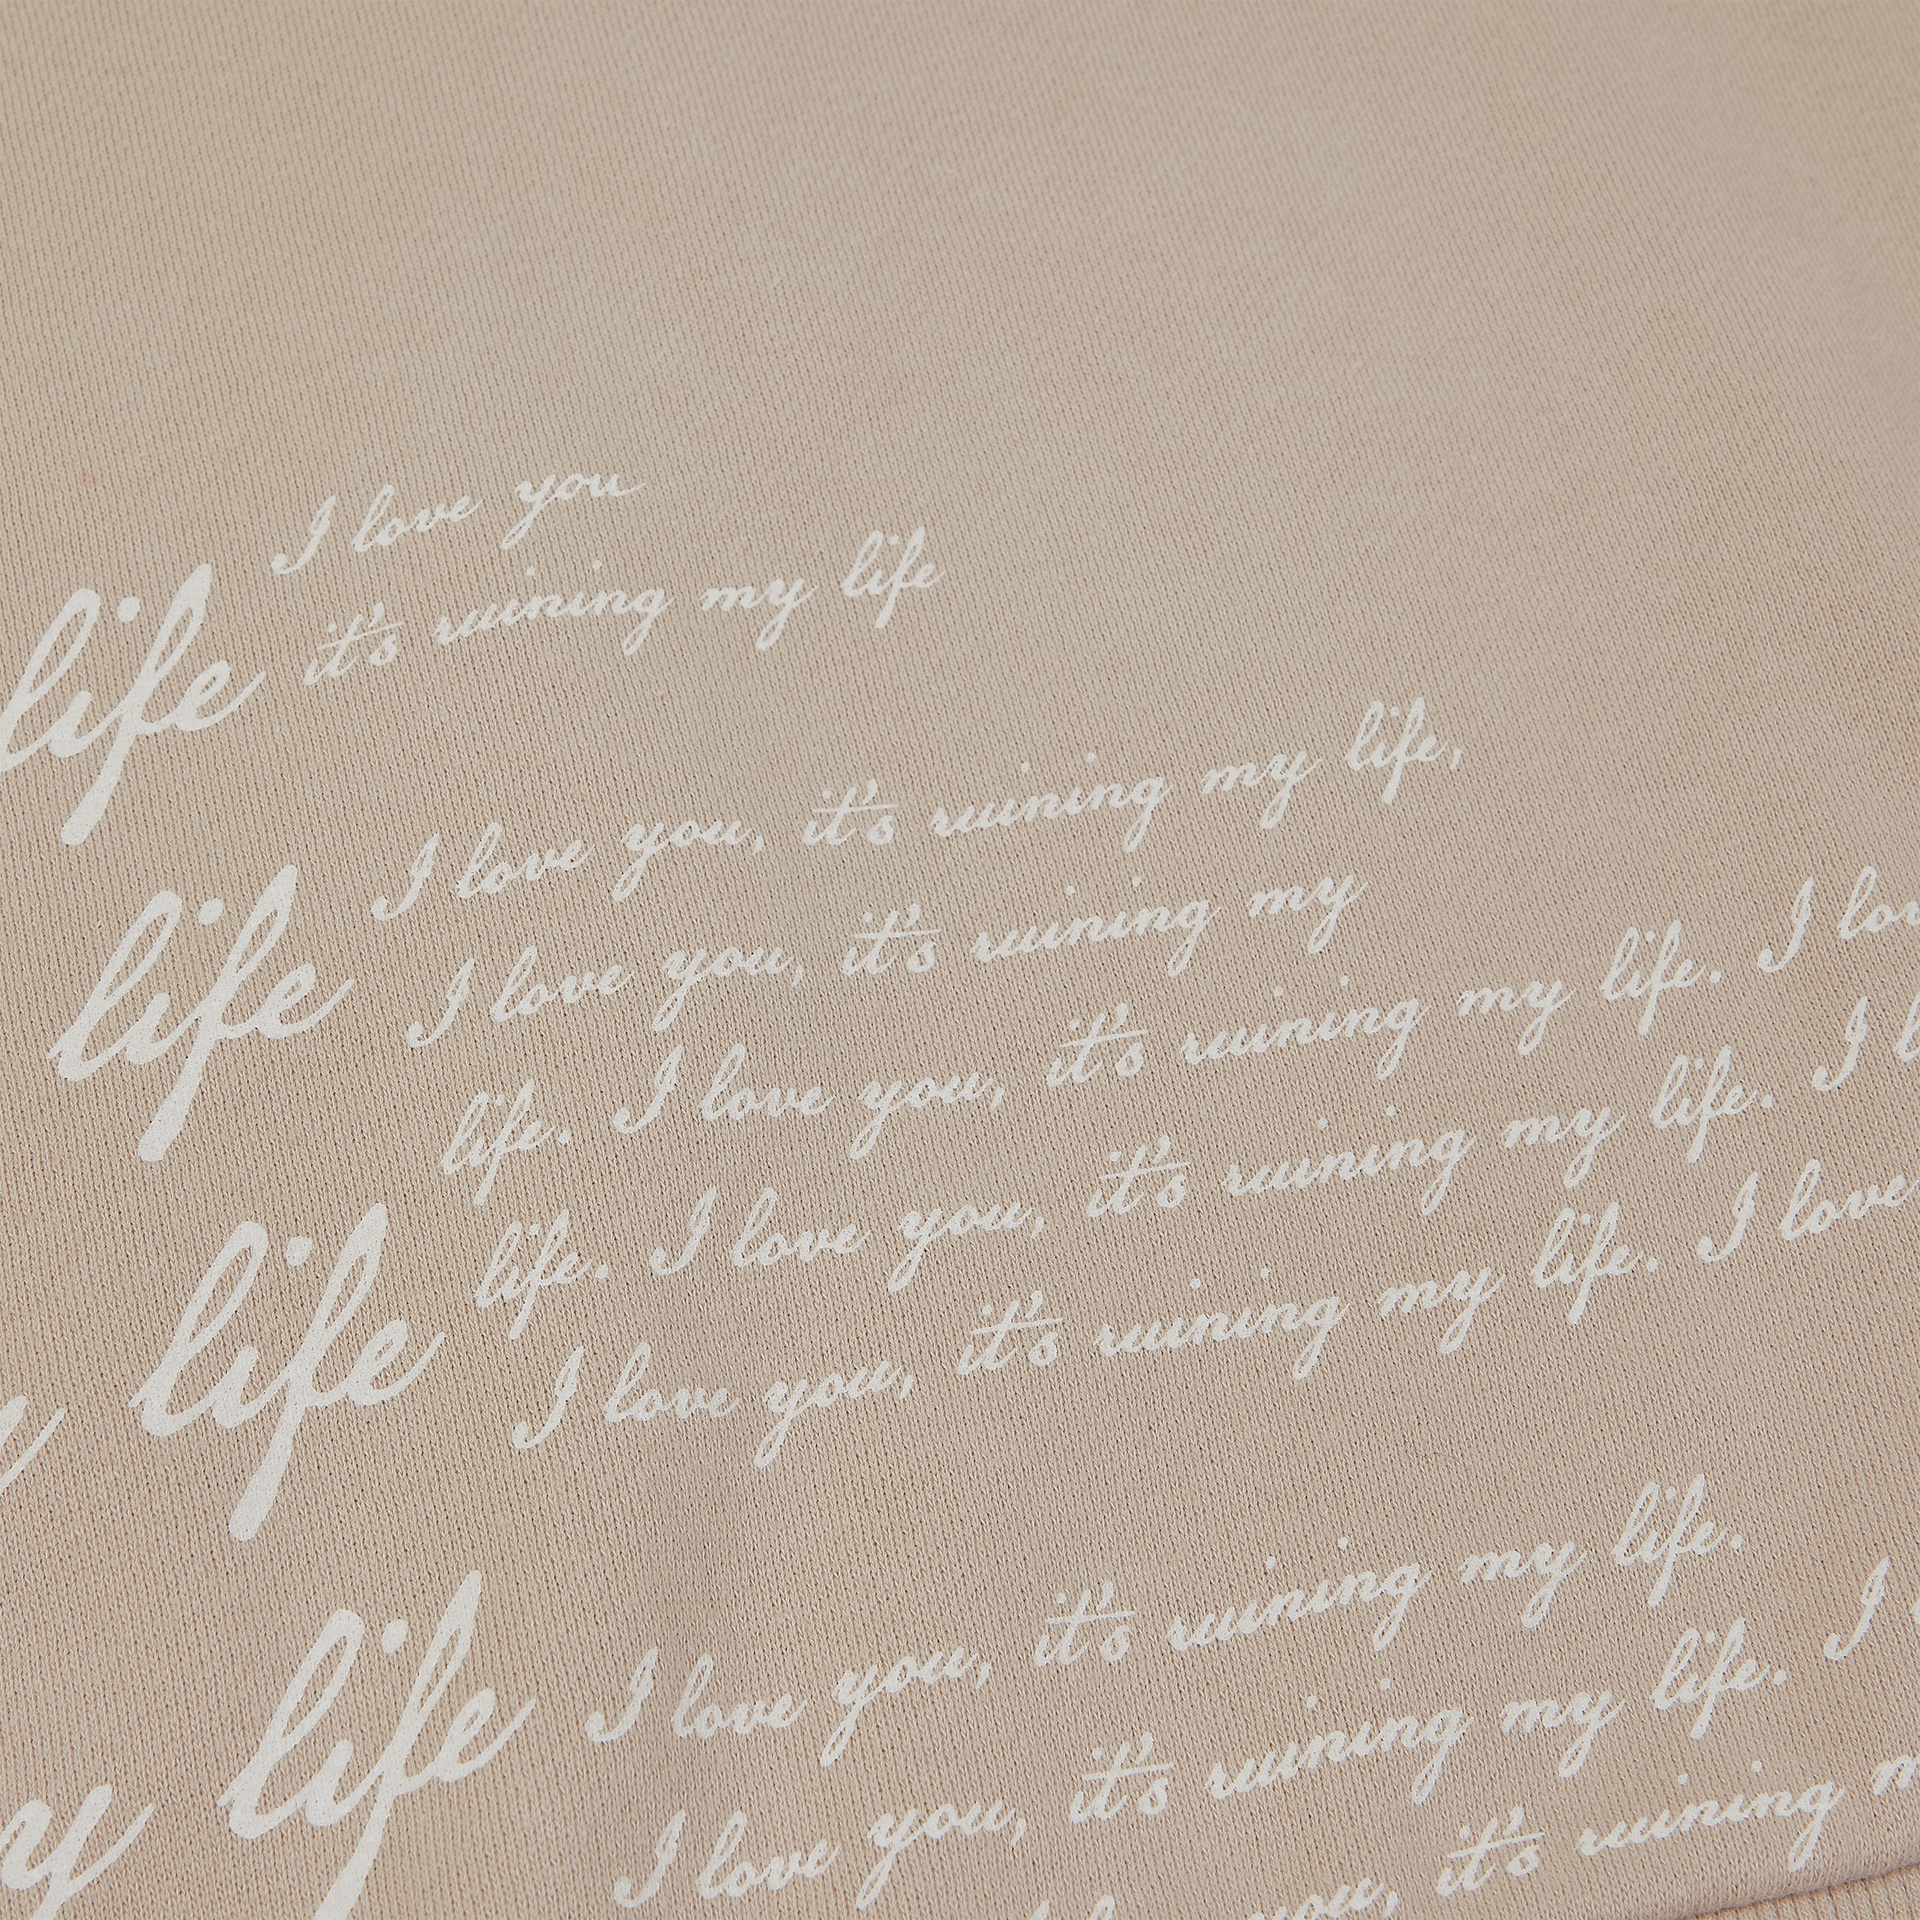 I love you
it's ruining my life
life
I love you, it's ruining my life,
I love you, it's ruining my
life
life. I love you, it's ruining my life. I
life. I love you, it's ruining my life. I
I love you, it's ruining my life. I love
life
I love you, it's ruining my life.
I love you, it's ruining my life. I
life
you, it's ruining